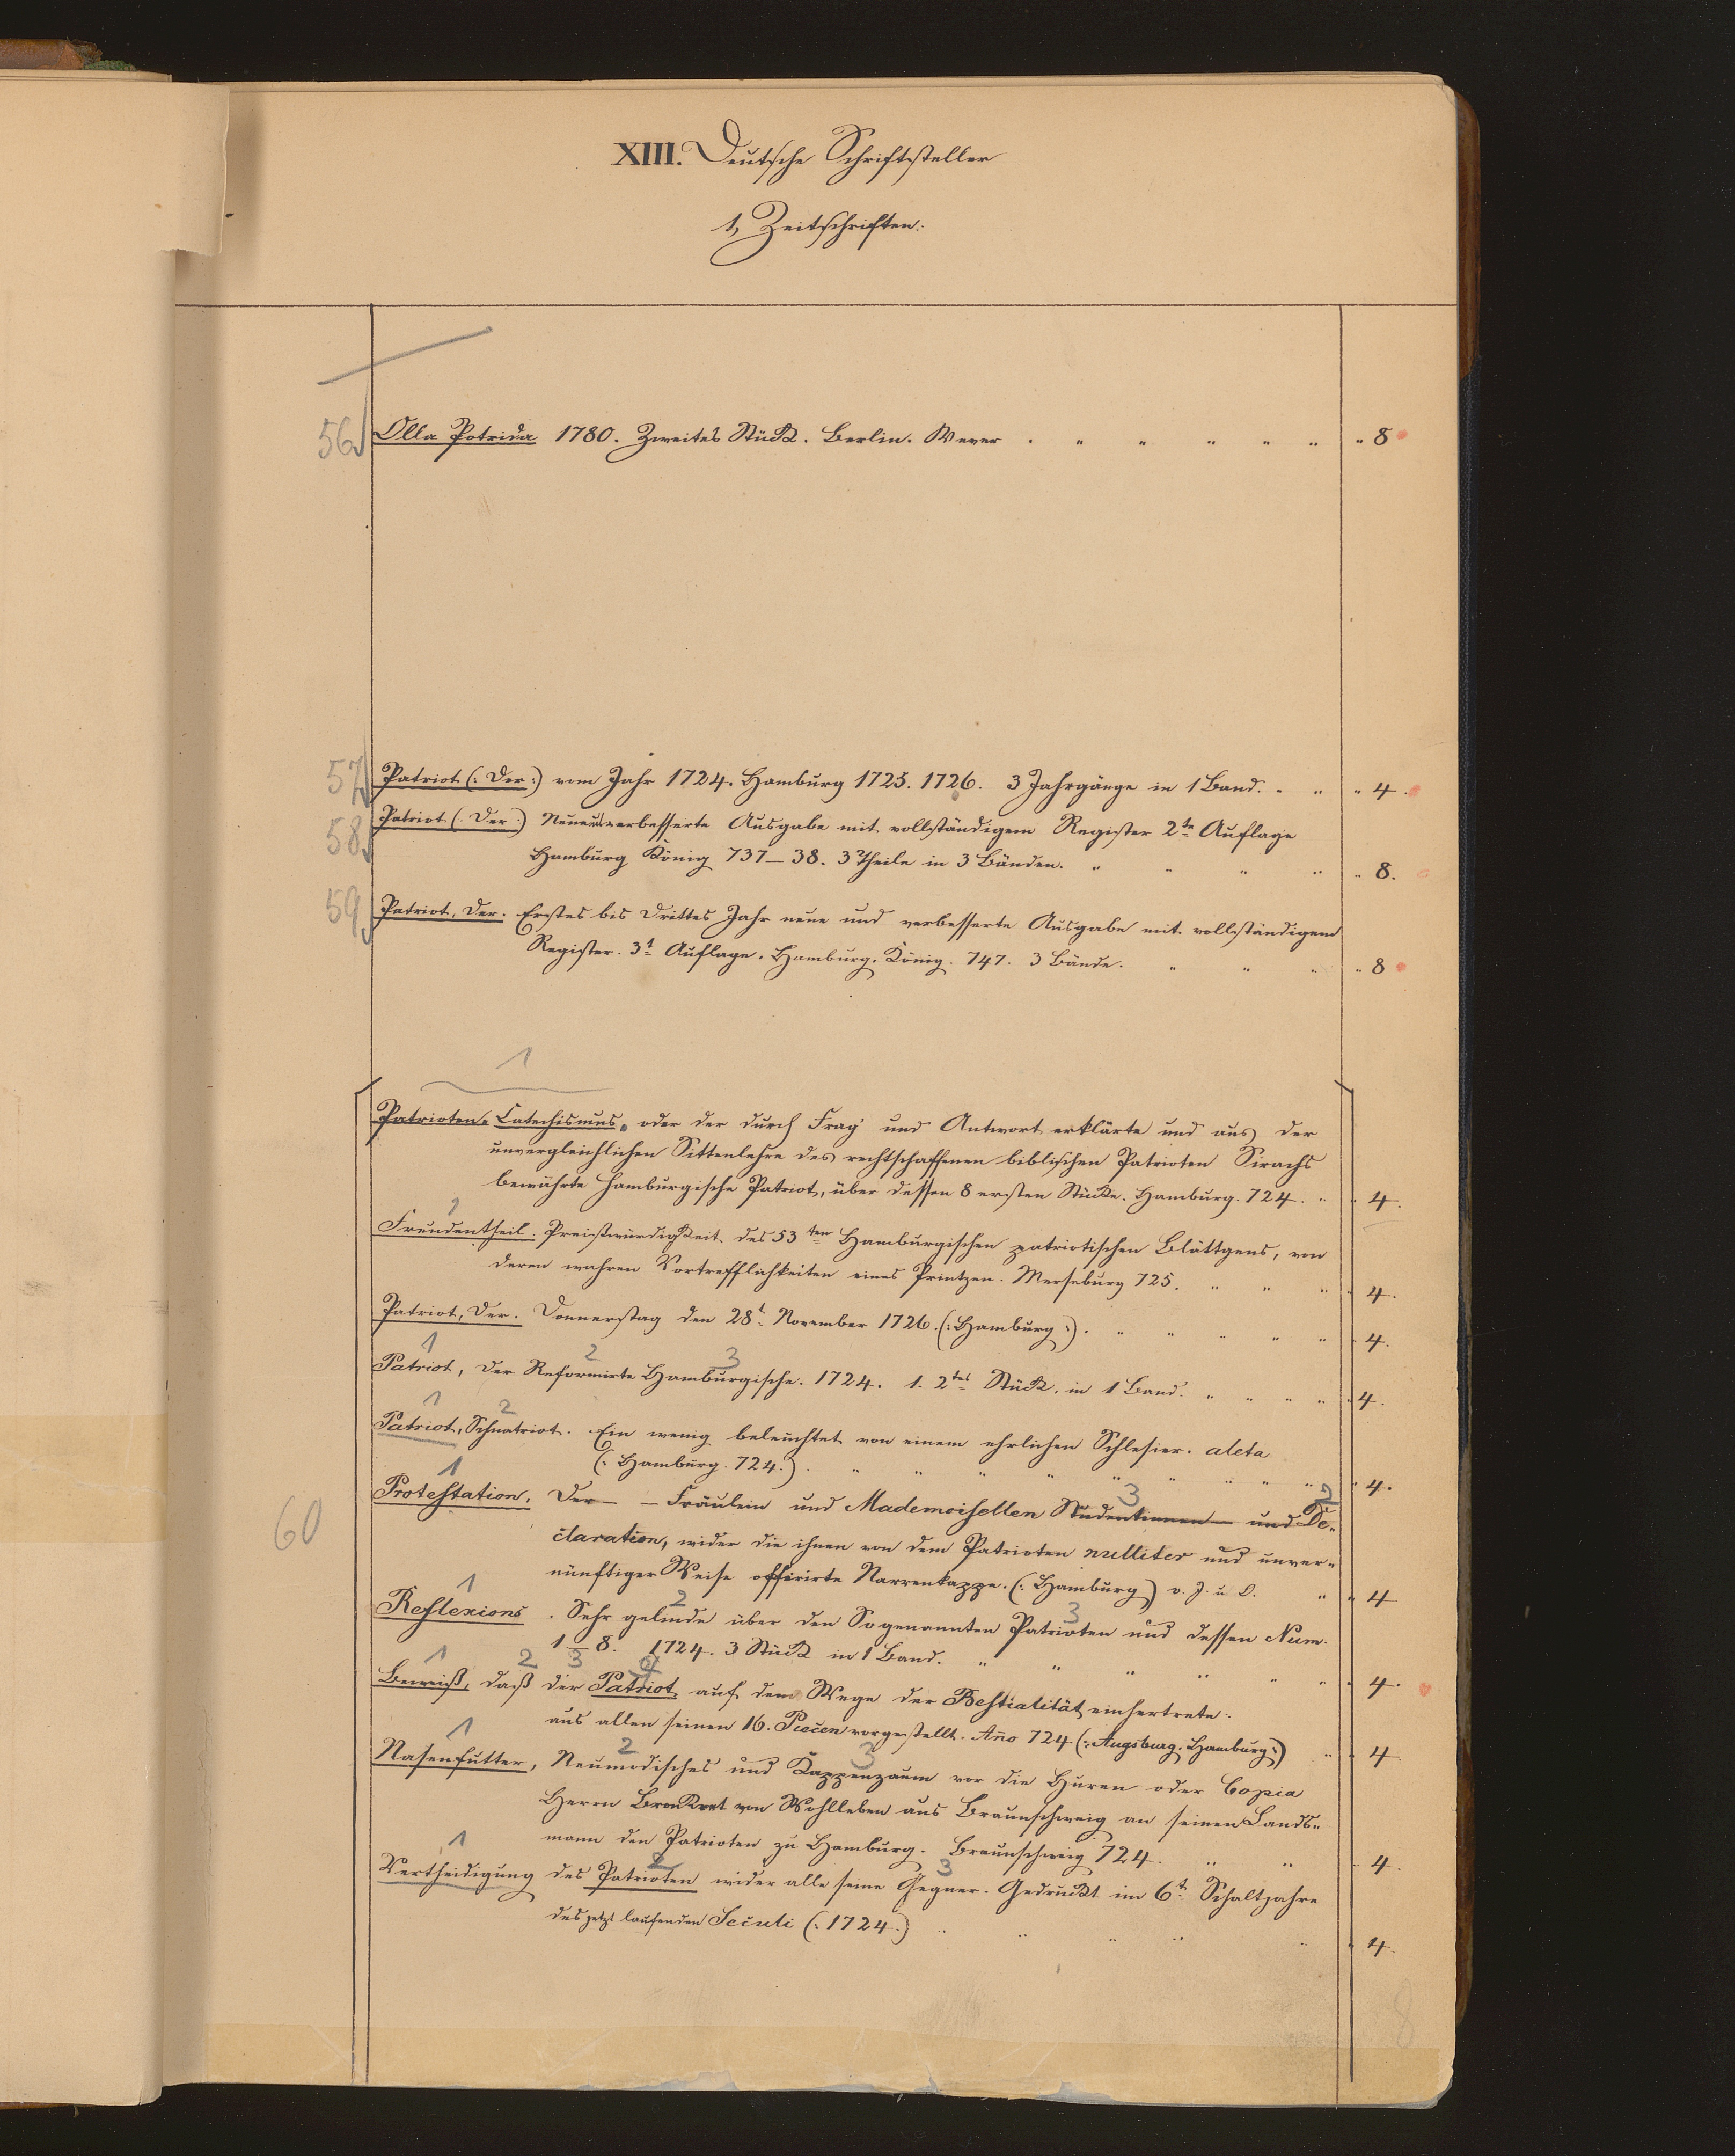 XIII. Deutsche Schriftsteller
1, Zeitschriften.
56 Olla Potrida 1780. Zweites Stück. Berlin. Wever . " " " " " " 8
57 Patriot (: Der :) vom Jahr 1724. Hamburg 1725. 1726. 3 Jahrgänge in 1 Band. " " " 4.
58 Patriot (: Der :) Neue u verbesserte Ausgabe mit vollständigem Register 2te Auflage
Hamburg König 737–38. 3 Theile in 3 Bänden. " " " " " 8.
59 Patriot, Der. Erstes bis Drittes Jahr neue und verbesserte Ausgabe mit vollständigem
Register. 3t Auflage. Hamburg. König. 747. 3 Bände. " " " " 8
1
Patrioten-Catechismus, oder der durch Frag' und Antwort erklärte und aus der
unvergleichlichen Sittenlehre des rechtschaffenen biblischen Patrioten Sirachs
bewährte Hamburgische Patriot, über dessen 8 ersten Stücke. Hamburg. 724. " " 4.
1
Freudentheil. Preißwürdigkeit des 53ten Hamburgischen patriotischen Blättgens, von
deren wahren Vortrefflichkeiten eines Printzen. Merseburg 725. " " " " 4.
Patriot, Der. Donnerstag den 28t November 1726. (: Hamburg :). " " " " " " 4.
1 2 3
Patriot, der Reformirte Hamburgische. 1724. 1. 2tes Stück. in 1 Band. " " " " " 4.
1 2
Patriot, Schnatriot. Ein wenig beleuchtet von einem ehrlichen Schlesier. aleta
(: Hamburg. 724. :) . " " " " " " " " " " 4.
1 3 2
60 Protestation. Der – – Fräulein und Mademoisellen Studentinnen – und De-
claration, wider die ihnen von dem Patrioten nulliter und unver-
nünftiger Weise offerirte Narrenkappe. (: Hamburg) o. J. u O. " " 4
1 2 3
Reflexions . Sehr gelinde über den So genannten Patrioten und dessen Num.
1–8. 1724. 3 Stück in 1 Band. " " " " " " " 4.
1 2 3 4
Beweiß, daß der Patriot auf dem Wege der Bestialität einhertrete.
aus allen seinen 16. Piecen vorgestellt. Año 724 (: Augsburg. Hamburg :) " " 4
1 2 3
Nasenfutter, Neumodisches und Kappenzaum vor die Huren oder Copia
Herrn von Wohlleben aus Braunschweig an seinen Lands-
mann den Patrioten zu Hamburg. Braunschweig 724. " " " 4.
1 2 3
Vertheidigung des Patrioten wider alle seine Gegner. Gedruckt im 6t Schaltjahre
des jetzt laufenden Seculi (: 1724.) " " " " " " 4.
8